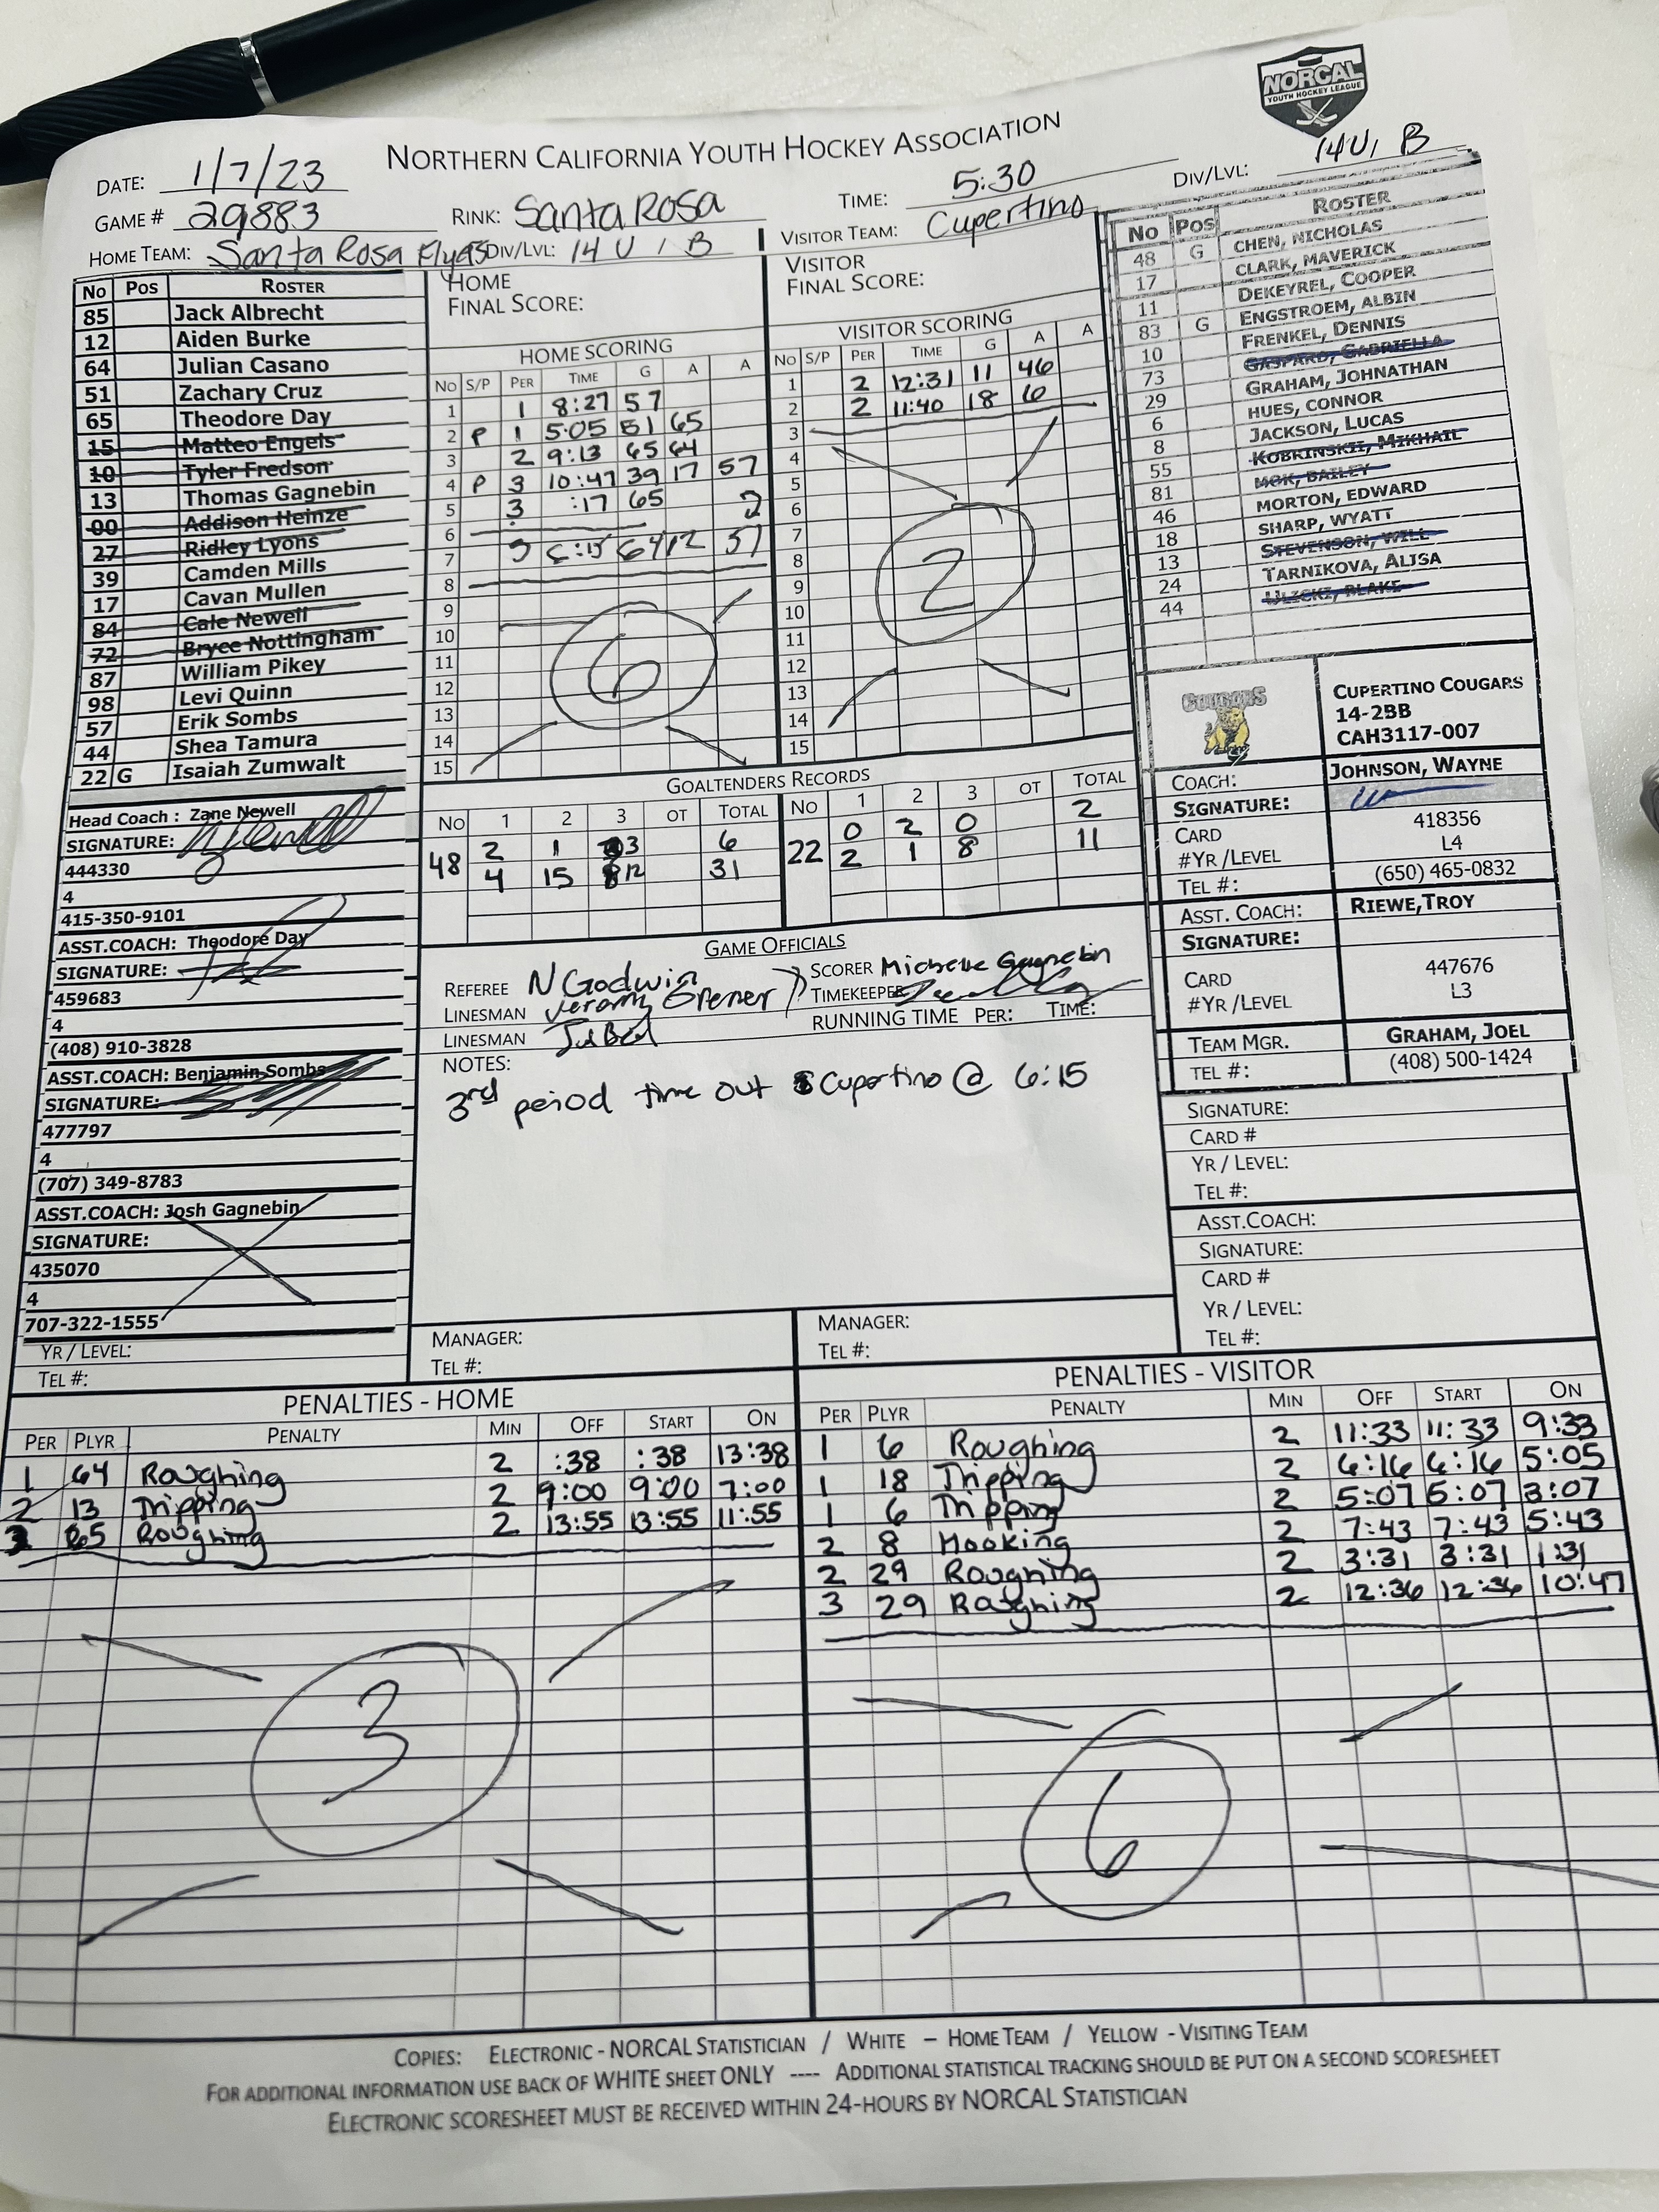 NORCAL
YOUTH HOCKEY LEAGUE
NORTHERN CALIFORNIA YOUTH HOCKEY ASSOCIATION
DATE: 1/7/23
TIME: 5:30
DIV/LVL: 14U, B
GAME # 29883
RINK: Santa Rosa
VISITOR TEAM: Cupertino
HOME TEAM: Santa Rosa Flyers
DIV/LVL: 14 U, B
No Pos ROSTER
85 Jack Albrecht
12 Aiden Burke
64 Julian Casano
51 Zachary Cruz
65 Theodore Day
15 Matteo Engels
10 Tyler Fredson
13 Thomas Gagnebin
00 Addison Heinze
27 Ridley Lyons
39 Camden Mills
17 Cavan Mullen
84 Cale Newell
72 Bryce Nottingham
87 William Pikey
98 Levi Quinn
57 Erik Sombs
44 Shea Tamura
22 G Isaiah Zumwalt
Head Coach : Zane Newell
SIGNATURE:
444330
4
415-350-9101
ASST.COACH: Theodore Day
SIGNATURE:
459683
4
(408) 910-3828
ASST.COACH: Benjamin Sombs
SIGNATURE:
477797
4
(707) 349-8783
ASST.COACH: Josh Gagnebin
SIGNATURE:
435070
4
707-322-1555
YR / LEVEL:
TEL #:
HOME
FINAL SCORE:
HOME SCORING
No S/P PER TIME G A A
1 1 8:27 57
2 P 1 5:05 51 65
3 2 9:13 65 64
4 P 3 10:47 39 17 57
5 3 :17 65 2
6
7 6:15 64 12
8
9
10
11
12
13
14
15
6
VISITOR
FINAL SCORE:
VISITOR SCORING
No S/P PER TIME G A A
1 2 12:31 11 46
2 2 11:40 18 6
3
4
5
6
7
8
9
10
11
12
13
14
15
2
GOALTENDERS RECORDS
No 1 2 3 OT TOTAL
48 2 1 3 6
4 15 12 31
No 1 2 3 OT TOTAL
22 0 2 0 2
2 1 8 11
GAME OFFICIALS
REFEREE N Godwin
LINESMAN
LINESMAN
SCORER Michelle Gagnebin
TIMEKEEPER
RUNNING TIME PER: TIME:
NOTES:
3rd period time out Cupertino @ 6:15
MANAGER:
TEL #:
MANAGER:
TEL #:
No Pos ROSTER
48 G CHEN, NICHOLAS
17 CLARK, MAVERICK
11 DEKEYREL, COOPER
83 G ENGSTROEM, ALBIN
10 FRENKEL, DENNIS
73 GASPARD, GABRIELLA
29 GRAHAM, JOHNATHAN
6 HUES, CONNOR
8 JACKSON, LUCAS
55 KOBRINSKII, MIKHAIL
81 MOK, BAILEY
46 MORTON, EDWARD
18 SHARP, WYATT
13 STEVENSON, WILL
24 TARNIKOVA, ALISA
44 ULICKI, BLAKE
COUGARS
CUPERTINO COUGARS
14-2BB
CAH3117-007
COACH: JOHNSON, WAYNE
SIGNATURE:
CARD 418356
#YR /LEVEL L4
TEL #: (650) 465-0832
ASST. COACH: RIEWE,TROY
SIGNATURE:
CARD 447676
#YR /LEVEL L3
TEAM MGR. GRAHAM, JOEL
TEL #: (408) 500-1424
SIGNATURE:
CARD #
YR / LEVEL:
TEL #:
ASST.COACH:
SIGNATURE:
CARD #
YR / LEVEL:
TEL #:
PENALTIES - HOME
PER PLYR PENALTY MIN OFF START ON
1 64 Roughing 2 :38 :38 13:38
2 13 Tripping 2 9:00 9:00 7:00
3 65 Roughing 2 13:55 13:55 11:55
3
PENALTIES - VISITOR
PER PLYR PENALTY MIN OFF START ON
1 6 Roughing 2 11:33 11:33 9:33
1 18 Tripping 2 6:16 6:16 5:05
1 6 Tripping 2 5:07 5:07 3:07
2 8 Hooking 2 7:43 7:43 5:43
2 29 Roughing 2 3:31 3:31 1:31
3 29 Roughing 2 12:36 12:36 10:47
6
COPIES: ELECTRONIC - NORCAL STATISTICIAN / WHITE – HOME TEAM / YELLOW - VISITING TEAM
FOR ADDITIONAL INFORMATION USE BACK OF WHITE SHEET ONLY ---- ADDITIONAL STATISTICAL TRACKING SHOULD BE PUT ON A SECOND SCORESHEET
ELECTRONIC SCORESHEET MUST BE RECEIVED WITHIN 24-HOURS BY NORCAL STATISTICIAN